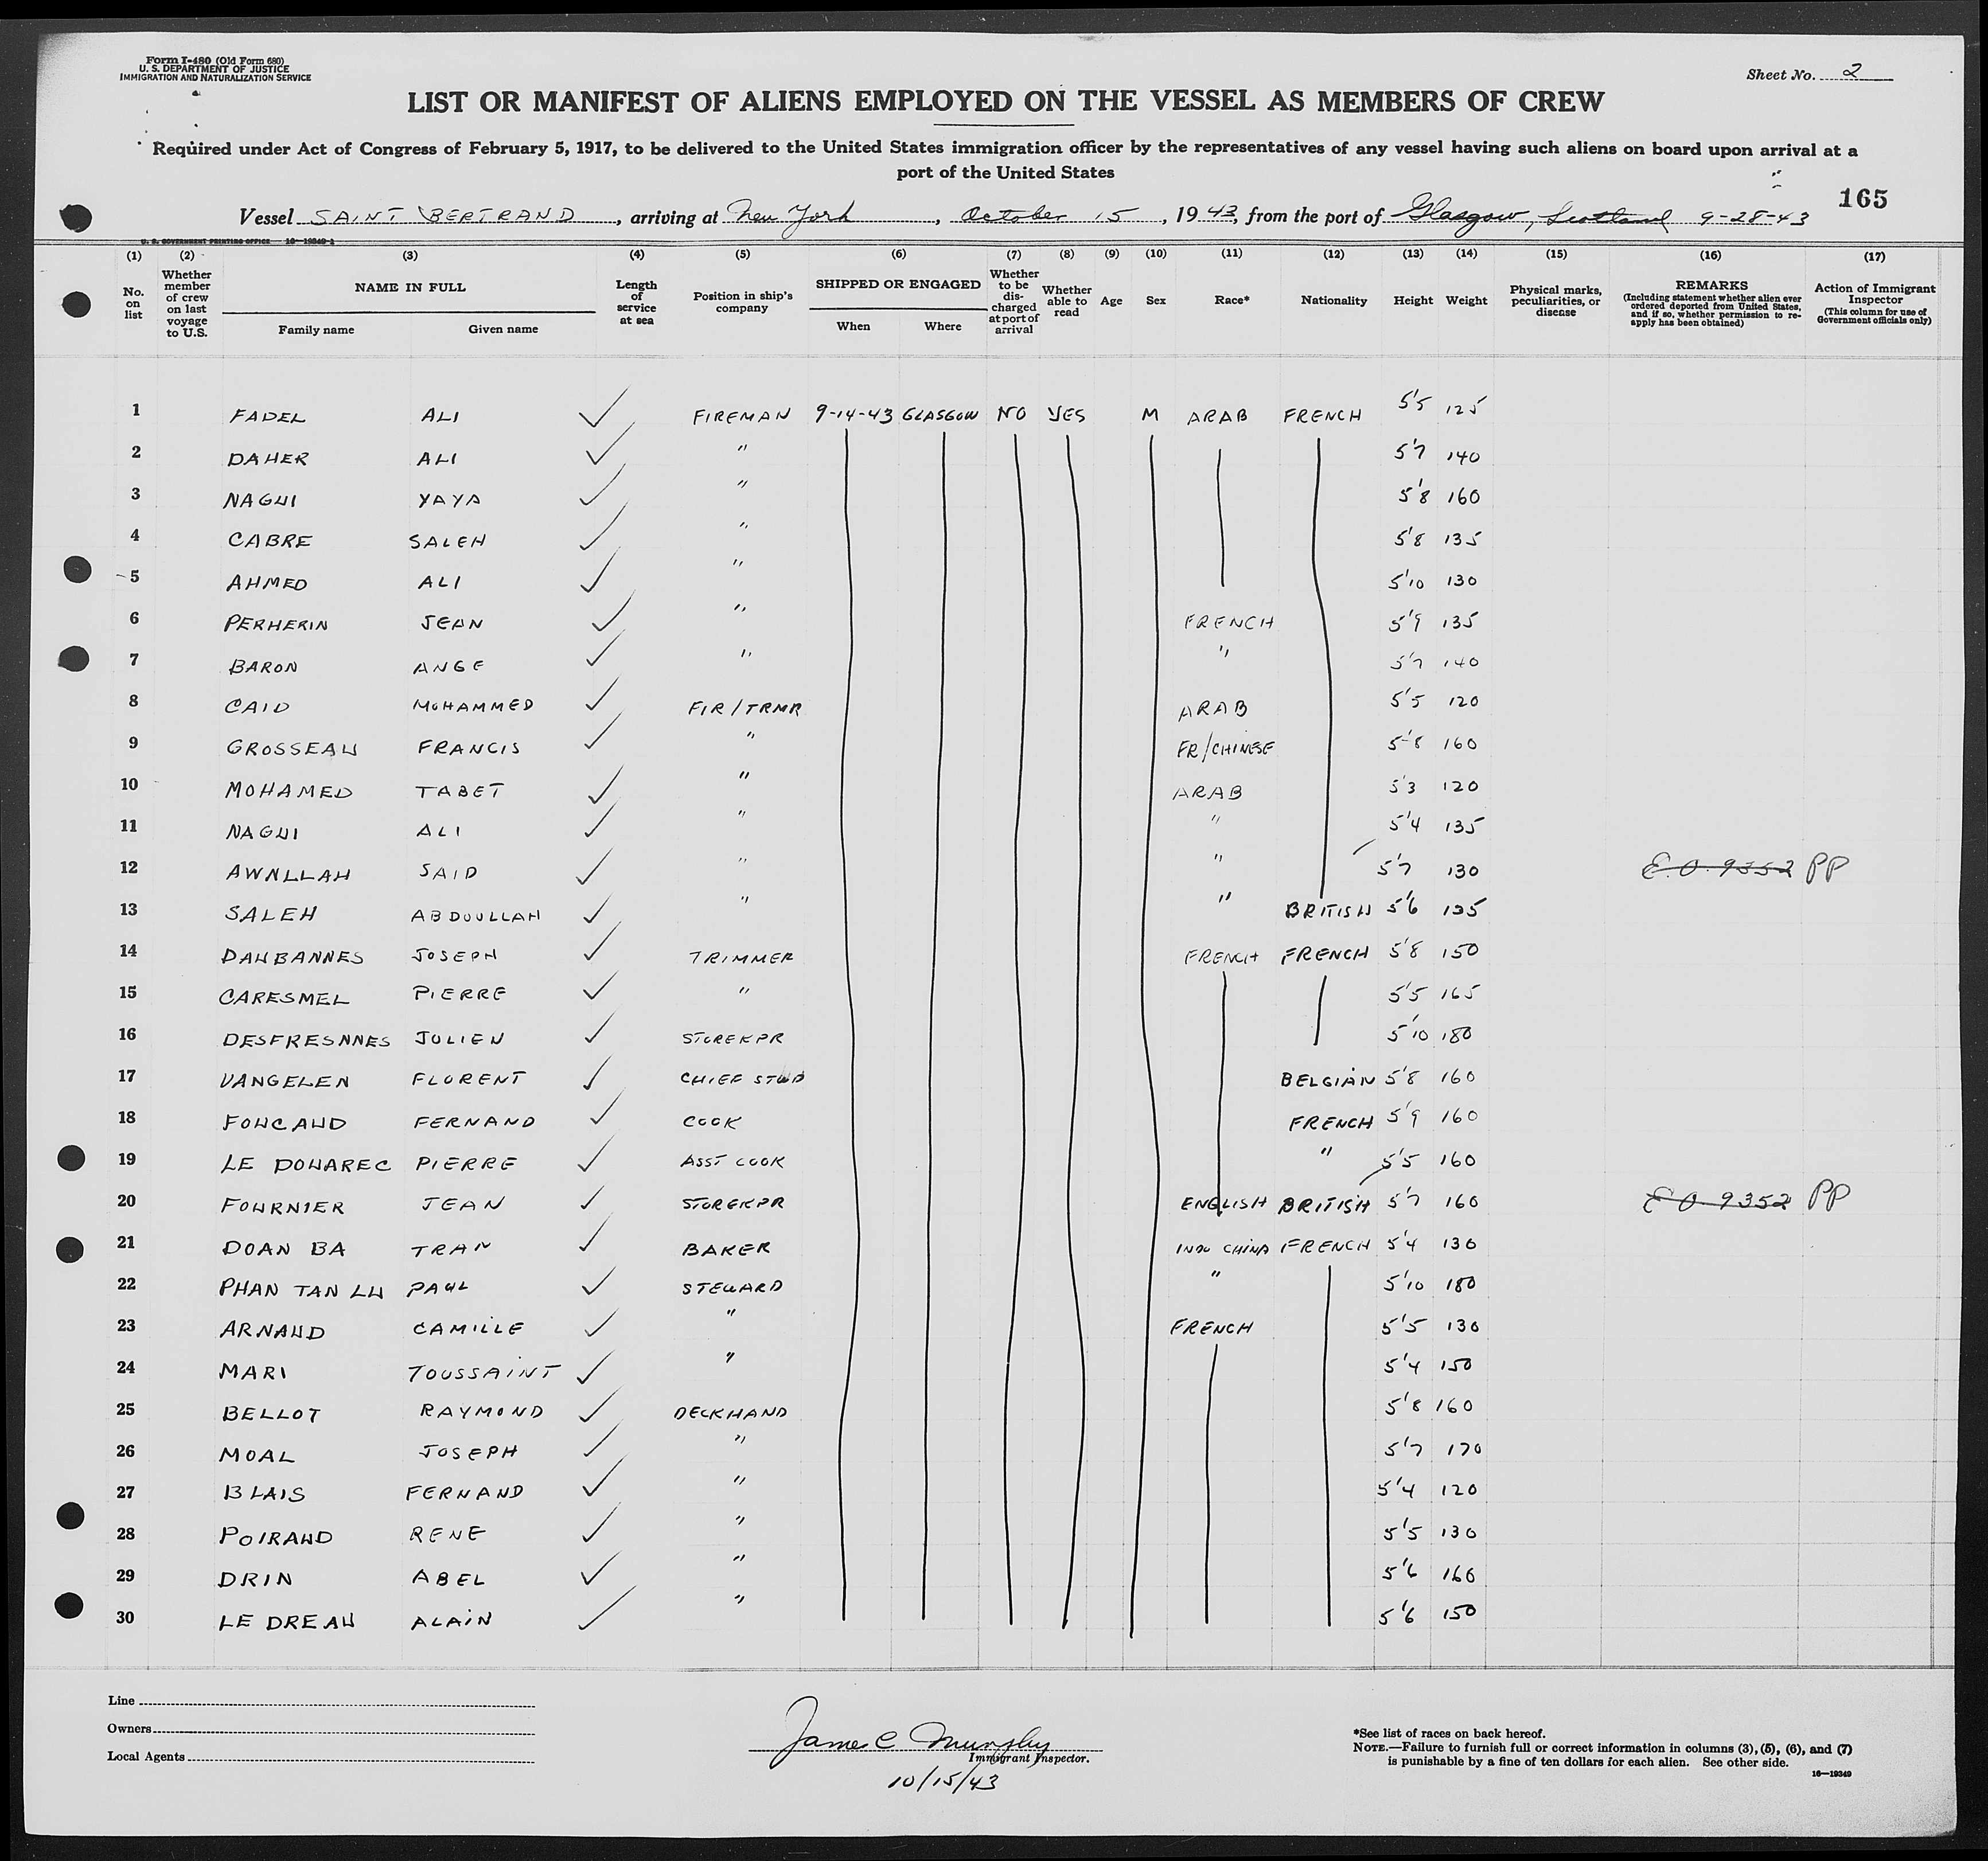 Form I-480 (Old Form 680)
U. S. DEPARTMENT OF JUSTICE
IMMIGRATION AND NATURALIZATION SERVICE
Sheet No. 2
LIST OR MANIFEST OF ALIENS EMPLOYED ON THE VESSEL AS MEMBERS OF CREW
Required under Act of Congress of February 5, 1917, to be delivered to the United States immigration officer by the representatives of any vessel having such aliens on board upon arrival at a
port of the United States
165
Vessel SAINT BERTRAND, arriving at New York, October 15, 1943, from the port of Glasgow, Scotland 9-28-43
U. S. GOVERNMENT PRINTING OFFICE 16—19349-1
(1) (2) (3) (4) (5) (6) (7) (8) (9) (10) (11) (12) (13) (14) (15) (16) (17)
No. on list
Whether member of crew on last voyage to U.S.
NAME IN FULL
Family name Given name
Length of service at sea
Position in ship's company
SHIPPED OR ENGAGED
When Where
Whether to be discharged at port of arrival
Whether able to read
Age
Sex
Race*
Nationality
Height
Weight
Physical marks, peculiarities, or disease
REMARKS
(Including statement whether alien ever ordered deported from United States, and if so, whether permission to reapply has been obtained)
Action of Immigrant Inspector
(This column for use of Government officials only)
1 FADEL ALI ✓ FIREMAN 9-14-43 GLASGOW NO YES M ARAB FRENCH 5'5 125
2 DAHER ALI ✓ " 5'7 140
3 NAGUI YAYA ✓ " 5'8 160
4 CABRE SALEH ✓ " 5'8 135
5 AHMED ALI ✓ " 5'10 130
6 PERHERIN JEAN ✓ " FRENCH 5'9 135
7 BARON ANGE ✓ " " 5'7 140
8 CAID MOHAMMED ✓ FIR/TRMR ARAB 5'5 120
9 GROSSEAU FRANCIS ✓ " FR/CHINESE 5'8 160
10 MOHAMED TABET ✓ " ARAB 5'3 120
11 NAGUI ALI ✓ " " 5'4 135
12 AWALLAH SAID ✓ " " 5'7 130 E.O. 9352 PP
13 SALEH ABDOULLAH ✓ " " BRITISH 5'6 135
14 DAUBANNES JOSEPH ✓ TRIMMER FRENCH FRENCH 5'8 150
15 CARESMEL PIERRE ✓ " 5'5 165
16 DESFRESNNES JULIEN ✓ STOREKPR 5'10 180
17 VANGELEN FLORENT ✓ CHIEF STWD BELGIAN 5'8 160
18 FOUCAUD FERNAND ✓ COOK FRENCH 5'9 160
19 LE DOUAREC PIERRE ✓ ASST COOK " 5'5 160
20 FOURNIER JEAN ✓ STOREKPR ENGLISH BRITISH 5'7 160 E.O. 9352 PP
21 DOAN BA TRAN ✓ BAKER INDO CHINA FRENCH 5'4 130
22 PHAN TAN LU PAUL ✓ STEWARD " 5'10 180
23 ARNAUD CAMILLE ✓ " FRENCH 5'5 130
24 MARI TOUSSAINT ✓ " 5'4 150
25 BELLOT RAYMOND ✓ DECKHAND 5'8 160
26 MOAL JOSEPH ✓ " 5'7 170
27 BLAIS FERNAND ✓ " 5'4 120
28 POIRAUD RENE ✓ " 5'5 130
29 DRIN ABEL ✓ " 5'6 160
30 LE DREAU ALAIN ✓ " 5'6 150
Line
Owners
Local Agents
James C
Immigrant Inspector.
10/15/43
*See list of races on back hereof.
NOTE.—Failure to furnish full or correct information in columns (3), (5), (6), and (7)
is punishable by a fine of ten dollars for each alien. See other side.
16—19349